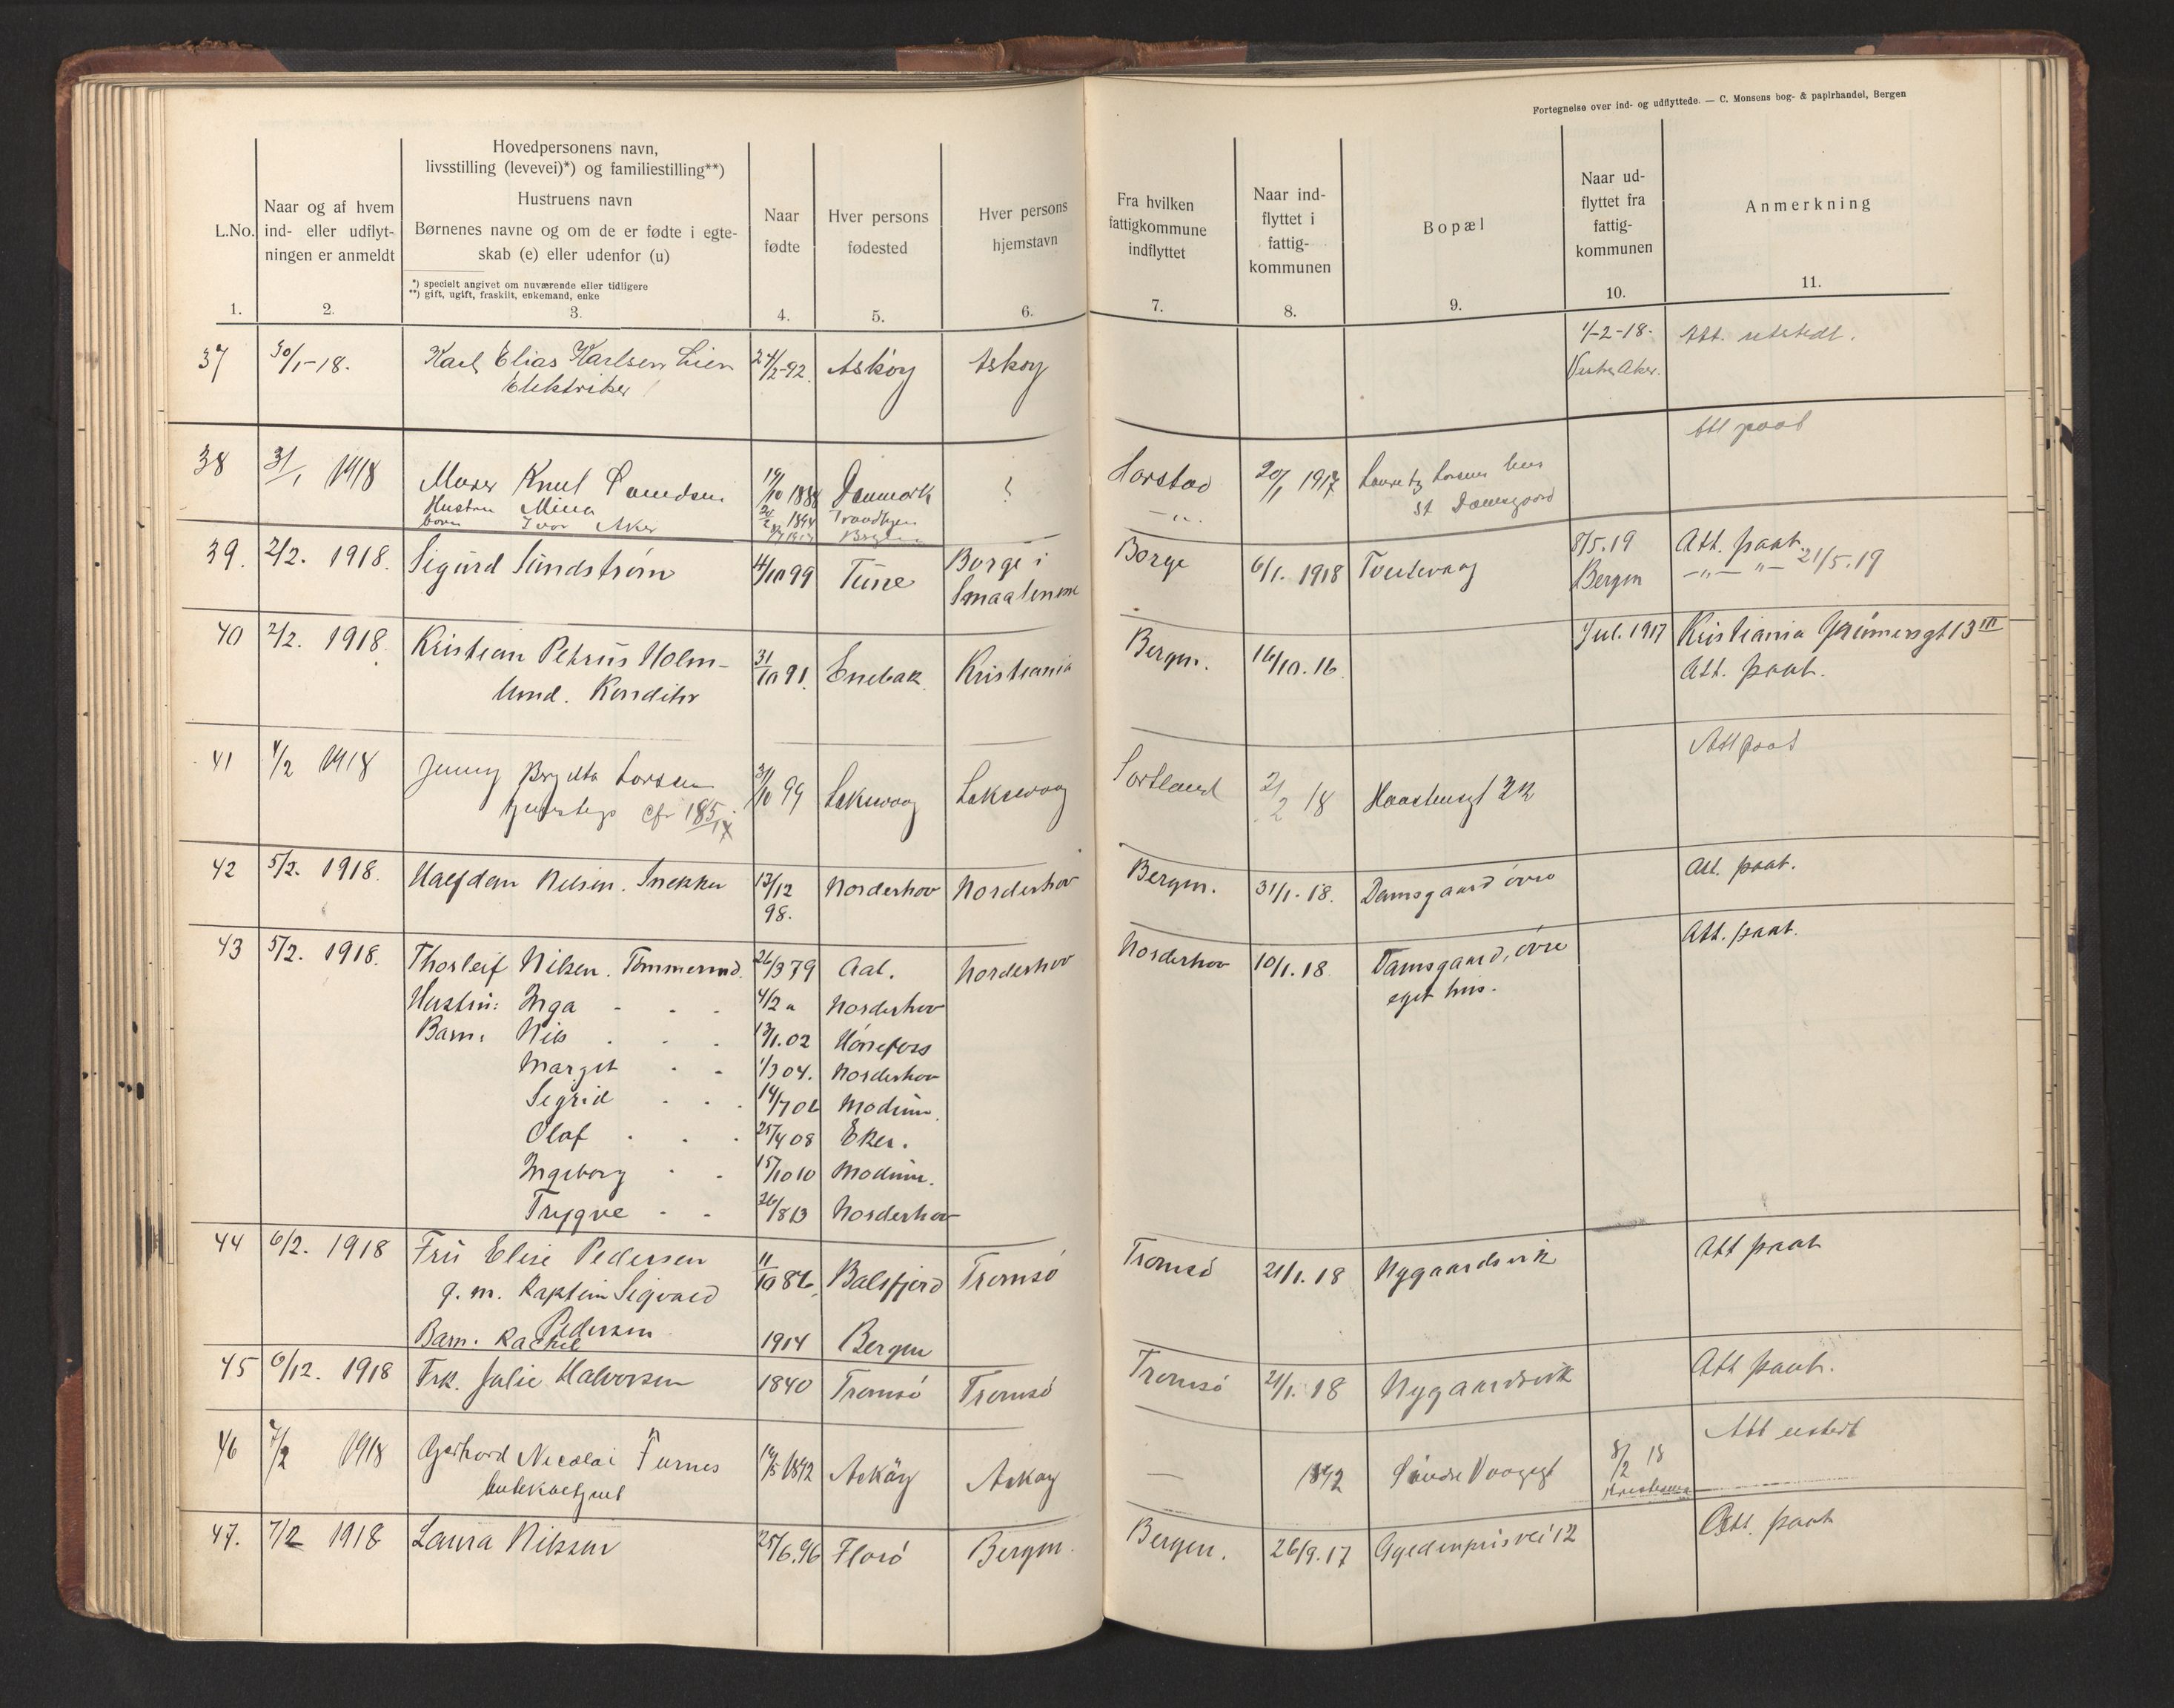 Fortegnelse over ind- og udflyttede. — C. Monsens bog- & papirhandel, Bergen
L.No.
1.
Naar og af hvem
ind- eller udflyt-
ningen er anmeldt
2.
Hovedpersonens navn,
livsstilling (levevei)*) og familiestilling**)
Hustruens navn
Børnenes navne og om de er fødte i egte-
skab (e) eller udenfor (u)
*) specielt angivet om nuværende eller tidligere
**) gift, ugift, fraskilt, enkemand, enke
3.
Naar
fødte
4.
Hver persons
fødested
5.
Hver persons
hjemstavn
6.
Fra hvilken
fattigkommune
indflyttet
7.
Naar ind-
flyttet i
fattig-
kommunen
8.
Bopæl
9.
Naar ud-
flyttet fra
fattig-
kommunen
10.
Anmerkning
11.
37 30/1-18. Karl Elias Karlsen Lien 24/2-92. Askøy Askøy 1/-2-18. Att. utstedt.
Elektriker Vestre Aker.
38 31/1 1918 Murer Knut 19/10 1888 Danmark ? Harstad 20/1 1917 hus Att paat
Hustru Mina 1894 Trondhjem — " — St. Damsgaard
barn Ivar Aker Bergen
39. 2/2. 1918. Sigurd Sundstrøm 4/10 99 Tune Borge i Smaalenene Borge 6/1. 1918 8/5.19 Bergen Att. paat.
— " — " — 21/5.19
40 2/2. 1918. Kristian Petrus Holm- 31/10 91. Enebak. Kristiania Bergen. 16/10.16. 1/Jul. 1917 Kristiania 13 III
lund. Konditor Att. paat.
41 4/2 1918 Jenny Larsen 31/10 99 Laksevaag Laksevaag Sortland 2/2 18 Att paat
cfr 185
42 5/2. 1918. Halfdan Nilsen. Snekker 13/12 98. Norderhov Norderhov Bergen. 31/1.18. Damsgaard øvre Att. paat.
43 5/2. 1918. Thorleif Nilsen. Tømmermd. 26/3 79 Aal. Norderhov Norderhov 10/1.18 Damsgaard, øvre Att. paat.
Hustru: Inga - - - 4/2 " Norderhov eget hus.
Barn: Nils . . . 13/1.02 Hønefoss
Margit . - 1/3 04. Norderhov
Sigrid . . . 14/7 06 Modum.
Olaf . . . 25/4 08 Eker.
Ingeborg . - 15/10 10 Modum.
Trygve - - 26/8 13 Norderhov
44 6/2. 1918 Fru Elise Pedersen 11/10 86. Balsfjord Tromsö Tromsö 21/1.18 Nygaardsvik Att paat
g. m. Kaptein Sigvald
Pedersen
Barn. Rachel 1914 Bergen
45 6/12. 1918 Frk. Julie Halvorsen 1840 Tromsö Tromsö Tromsö 21/1.18 Nygaardsvik Att paat.
46 7/2 1918 Gerhard Nicolai Furnes 14/5 1892 Askøy Askøy — 1892 Søndre Vaagsgt 8/2 18 Kristiania Att utstedt
47. 7/2 1918 Laura Nilssen 25/6.96 Florö Bergen Bergen. 26/9.17 Gyldenprisvei 12 Att. paat